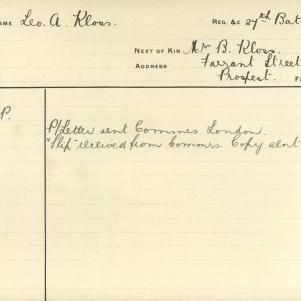 NAME Leo. A. Kloss. REG. &C 27th Bat
NEXT OF KIN Mr B. Kloss.
ADDRESS Farrant Street
Prospect. F
P.
P/Letter sent Commrs London.
"Slip" received from Commrs. Copy sent